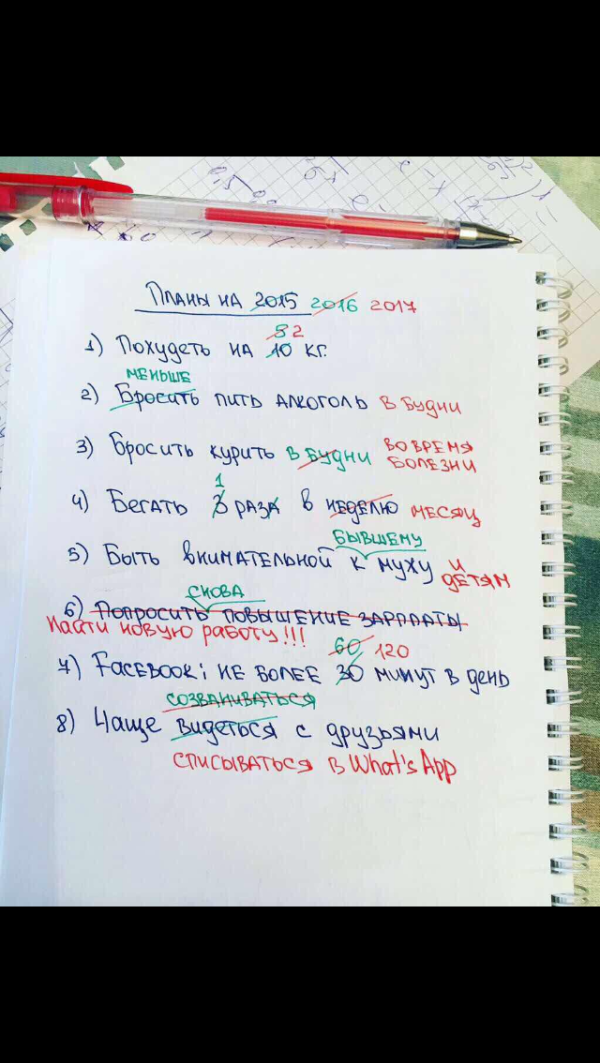 Планы на 2015 2016 2017
8 2
1) Похудеть на 10 кг.
меньше
2) Бросить пить алкоголь в будни
3) Бросить курить в будни во время болезни
1
4) Бегать 3 раза в неделю месяц
бывшему
5) Быть внимательной к мужу и детям
снова
6) Попросить повышение зарплаты
Найти новую работу!!!
60 120
7) Facebook: не более 30 минут в день
созваниваться
8) Чаще видеться с друзьями
списываться в What's App